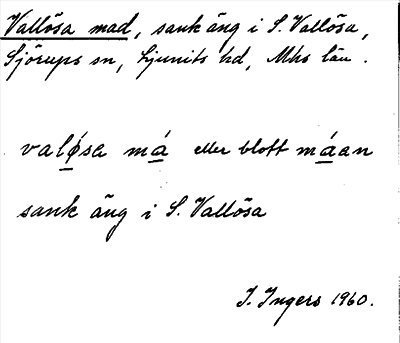 Vallösa mad, sank äng i S. Vallösa,
Sjörups sn, Ljunits hd, Mhs län.
valǿ̲sa má̲ eller blott má̲an
sank äng i S. Vallösa
I. Ingers 1960.